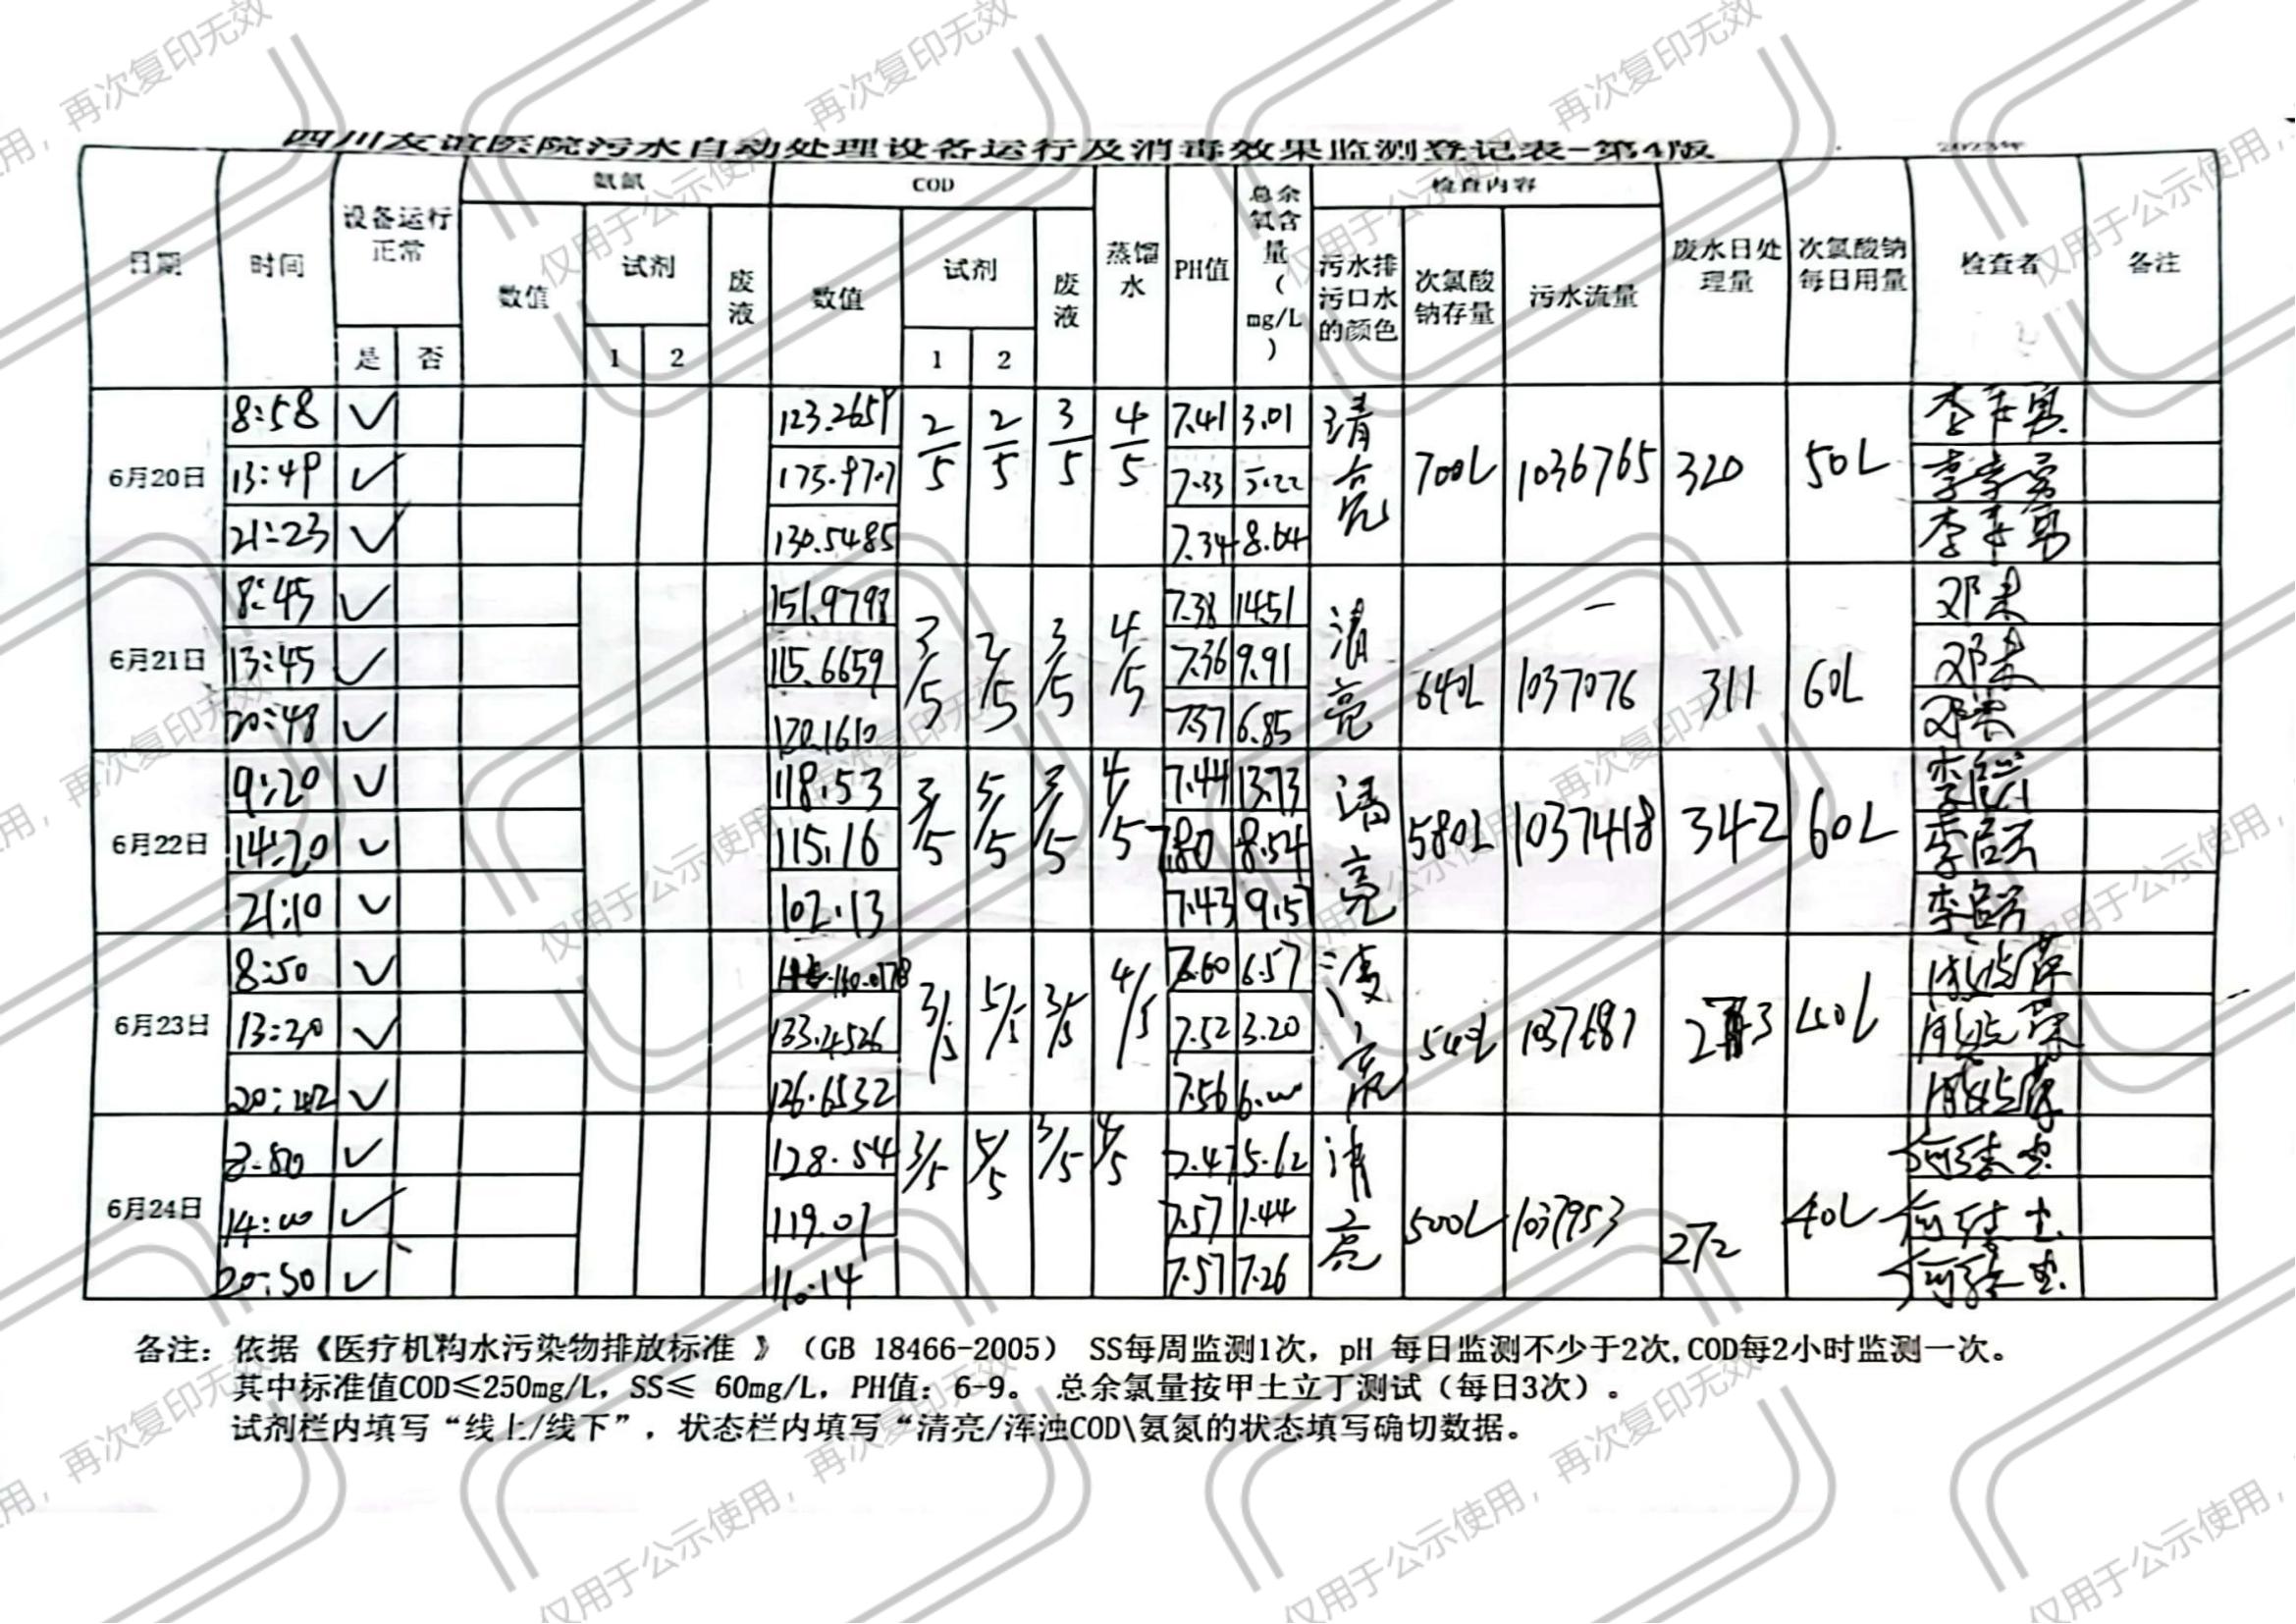 四川友谊医院污水自动处理设备运行及消毒效果监测登记表-第4版 2023年
日期 时间 设备运行正常 氨氮 COD 蒸馏水 PH值 总余氧含量(mg/L) 检查内容 废水日处理量 次氯酸钠每日用量 检查者 备注
是 否 数值 试剂 废液 数值 试剂 废液 污水排污口水的颜色 次氯酸钠存量 污水流量
1 2 1 2
6月20日 8:58 ✓ 123.2659 2/5 2/5 3/5 4/5 7.41 3.01 清亮 700L 1036765 320 50L
13:49 ✓ 175.9707 7.33 5.22
21:23 ✓ 130.5485 7.34 8.64
6月21日 8:45 ✓ 151.9798 3/5 2/5 3/5 4/5 7.38 14.51 清亮 640L 1037076 311 60L 邓未
13:45 ✓ 115.6659 7.36 9.91 邓未
20:48 ✓ 120.1610 7.37 6.85 邓未
6月22日 9:20 ✓ 118.53 3/5 5/5 3/5 4/5 7.44 13.73 清亮 580L 1037418 342 60L
14:20 ✓ 115.16 7.80 8.54
21:10 ✓ 102.13 7.43 9.57
6月23日 8:50 ✓ 3/5 5/5 3/5 4/5 7.60 6.57 清亮 540L 1037681 40L
13:20 ✓ 133.4526 7.52 3.20
20:42 ✓ 126.6532 7.56 6.00
6月24日 8:50 ✓ 128.54 3/5 5/5 3/5 4/5 7.47 5.62 清亮 500L 1037953 272 40L
14:00 ✓ 119.01 7.57 1.44
20:50 ✓ 110.14 7.57 7.26
备注: 依据《医疗机构水污染物排放标准 》（GB 18466-2005） SS每周监测1次，pH 每日监测不少于2次,COD每2小时监测一次。
其中标准值COD≤250mg/L，SS≤ 60mg/L，PH值：6-9。 总余氯量按甲土立丁测试（每日3次）。
试剂栏内填写“线上/线下”，状态栏内填写“清亮/浑浊COD\氨氮的状态填写确切数据。
仅用于公示使用，再次复印无效